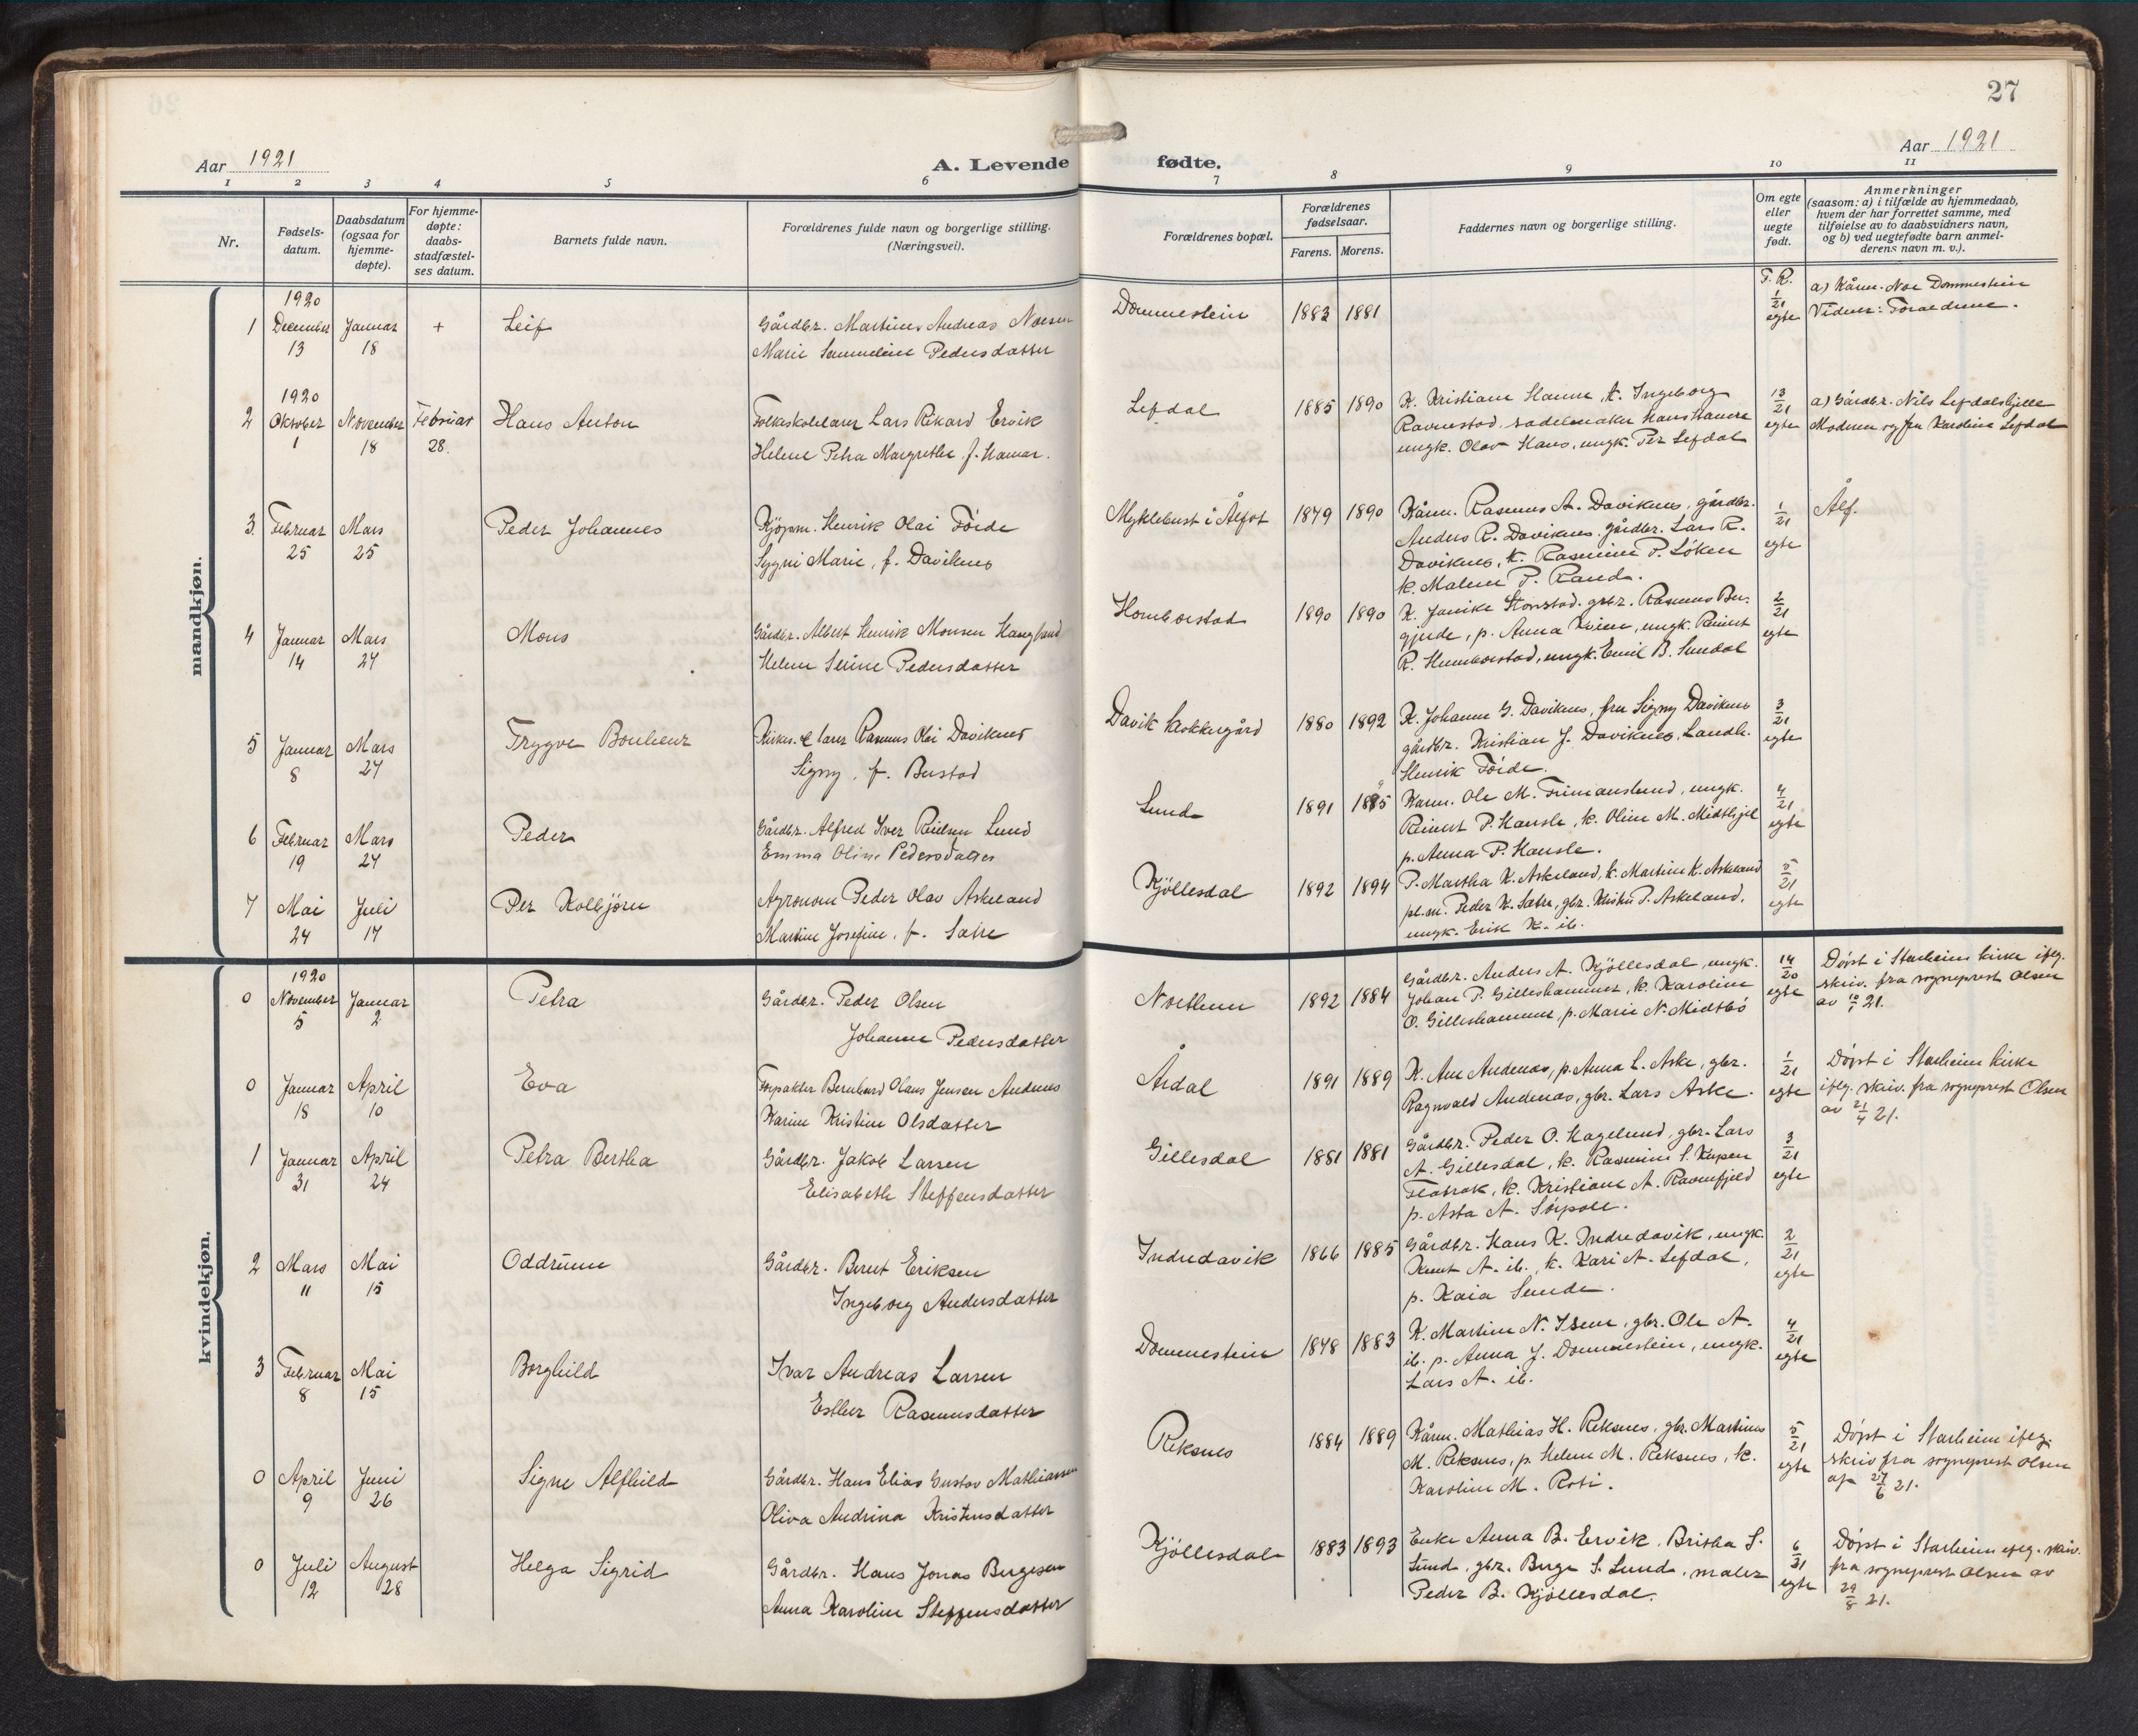 27
Aar 1921
A. Levende
fødte.
Aar 1921
1 2 3 4 5 6 7 8 9 10 11
Nr.
Fødsels-
datum.
Daabsdatum
(ogsaa for
hjemme-
døpte).
For hjemme-
døpte:
daabs-
stadfæstel-
ses datum.
Barnets fulde navn.
Forældrenes fulde navn og borgerlige stilling.
(Næringsvei).
Forældrenes bopæl.
Forældrenes
fødselsaar.
Farens. Morens.
Faddernes navn og borgerlige stilling.
Om egte
eller
uegte
født.
Anmerkninger
(saasom: a) i tilfælde av hjemmedaab,
hvem der har forrettet samme, med
tilføielse av to daabsvidners navn,
og b) ved uegtefødte barn anmel-
derens navn m. v.).
mandkjøn.
1
1920
December
13
Januar
18
+
Leif
Gårdbr. Martinus Andreas Noesen
Marie Samueline Pedersdatter
Dommestein
1883 1881
F. R.
1/21
egte
a) Kårm. Noe Dommestein
Vidner: Foraldrene.
2
1920
Oktober
1
November
18
Februar
28.
Hans Anton
Folkeskolelærer Lars Rikard Ervik
Helene Petra Margrethe f. Hamar.
Lefdal
1885 1890
K. Kristiane Hamre, k. Ingeborg
Ravnestad, sadelmaker Hans Hamre
ungk. Olav Hans, ungk. Per Lefdal
13/21
egte
a) Gårdbr. Nils Lefdalshjelle
Moderen og fru Karoline Lefdal
3.
Februar
25
Mars
25
Peder Johannes
Kjøpm. Henrik Olai Förde
Sygni Marie, f. Daviknes
Myklebust i Ålfot
1879 1890
Kårm. Rasmus A. Daviknes, gårdbr.
Anders R. Daviknes, gårdbr. Lars R.
Daviknes, k. Rasmine P. Løken
k. Malene P. Rand.
1/21
egte
Ålf.
4
Januar
14
Mars
27
Mons
Gårdbr. Albert Henrik Monsen Haugland
Helene Severine Pedersdatter
Homborstad
1890 1890
K. Janike Storstad, gbr. Rasmus Ber-
gjude, p. Anna Kvien, ungk. Reinert
R. Humborstad, ungk. Emil B. Sundal
2/21
egte
5
Januar
8
Mars
27
Trygve Bonheur
Kirkes. & lærer Rasmus Olai Daviknes
Signy, f. Bustad
Davik klokkergård
1880 1892
K. Johanne G. Daviknes, fru Signy Daviknes
gårdbr. Kristian J. Daviknes, Landh.
Henrik Förde.
3/21
egte
6
Februar
19
Mars
27
Peder
Gårdbr. Alfred Iver Rielsen Lund
Emma Oline Pedersdatter
Lund
1891 1885
Kårm. Ole M. Frimanslund, ungk.
Reinert P. Hausle, k. Oline M. Midthjel
p. Anna P. Hausle.
4/21
egte
7
Mai
24
Juli
17
Per Kolbjørn
Agronom Peder Olav Askeland
Martine Josefine, f. Sætre
Kjöllesdal
1892 1894
P. Martha K. Askeland, k. Martine K. Askeland
pl.m. Peder K. Sætre, gbr. Kristen P. Askeland,
ungk. Erik K. ib.
5/21
egte
kvindekjøn.
0
1920
November
5
Januar
2
Petra
Gårdbr. Peder Olsen
Johanne Pedersdatter
Nortun
1892 1884
Gårdbr. Anders A. Kjöllesdal, ungk.
Johan P. Gilleshammer, k. Karoline
O. Gilleshammer, p. Marie N. Midtbö
14/20
egte
Döpt i Starheim kirke ifölg.
skriv. fra sogneprest Olsen
av 10/1 21.
0
Januar
18
April
10
Eva
Forpakter Bernhard Olaus Jensen Andenæs
Karine Kristine Olsdatter
Årdal
1891 1889
K. Ane Andenæs, p. Anna L. Aske, gbr.
Ragnvald Andenæs, gbr. Lars Aske.
1/21
egte
Döpt i Starheim kirke
ifölg. skriv. fra sogneprest Olsen
av 21/4 21.
1
Januar
31
April
24
Petra Bertha
Gårdbr. Jakob Larsen
Elisabeth Steffensdatter
Gillesdal
1881 1881
Gårdbr. Peder O. Hagelund, gbr. Lars
A. Gillesdal, k. Rasmine S. Kupen
Flatrak, k. Kristiane A. Ravnefjeld
p. Asta A. Sörpoll.
3/21
egte
2
Mars
11
Mai
15
Oddrunn
Gårdbr. Bernt Eriksen
Ingeborg Andersdatter
Indredavik
1866 1885
Gårdbr. Hans K. Indredavik, ungk.
Knut A. ib., k. Kari A. Lefdal,
p. Kaia Sunde.
2/21
egte
3
Februar
8
Mai
15
Borghild
Ivar Andreas Larsen
Esther Rasmusdatter
Dommestein
1878 1883
K. Martine N. Isene, gbr. Ole A.
ib. p. Anna J. Dommestein, ungk.
Lars A. ib.
4/21
egte
0
April
9
Juni
26
Signe Alfhild
Gårdbr. Hans Elias Gustav Mathiassen
Oliva Andrina Kristensdatter
Reksnes
1884 1889
Kårm. Mathias H. Reksnes, gbr. Martinus
M. Reksnes, p. Helene M. Reksnes, k.
Karoline M. Roti.
5/21
egte
Döpt i Starheim ifölg.
skriv fra sogneprest Olsen
af 27/6 21.
0
Juli
12
August
28
Helga Sigrid
Gårdbr. Hans Jonas Bergesen
Anna Karoline Steffensdatter
Kjöllesdal
1883 1893
Enke Anna B. Ervik, Britha S.
Lund, gbr. Berge S. Lund, maler
Peder B. Kjöllesdal.
6/21
egte
Döpt i Starheim ifölg. skriv.
fra sogneprest Olsen av
29/8 21.